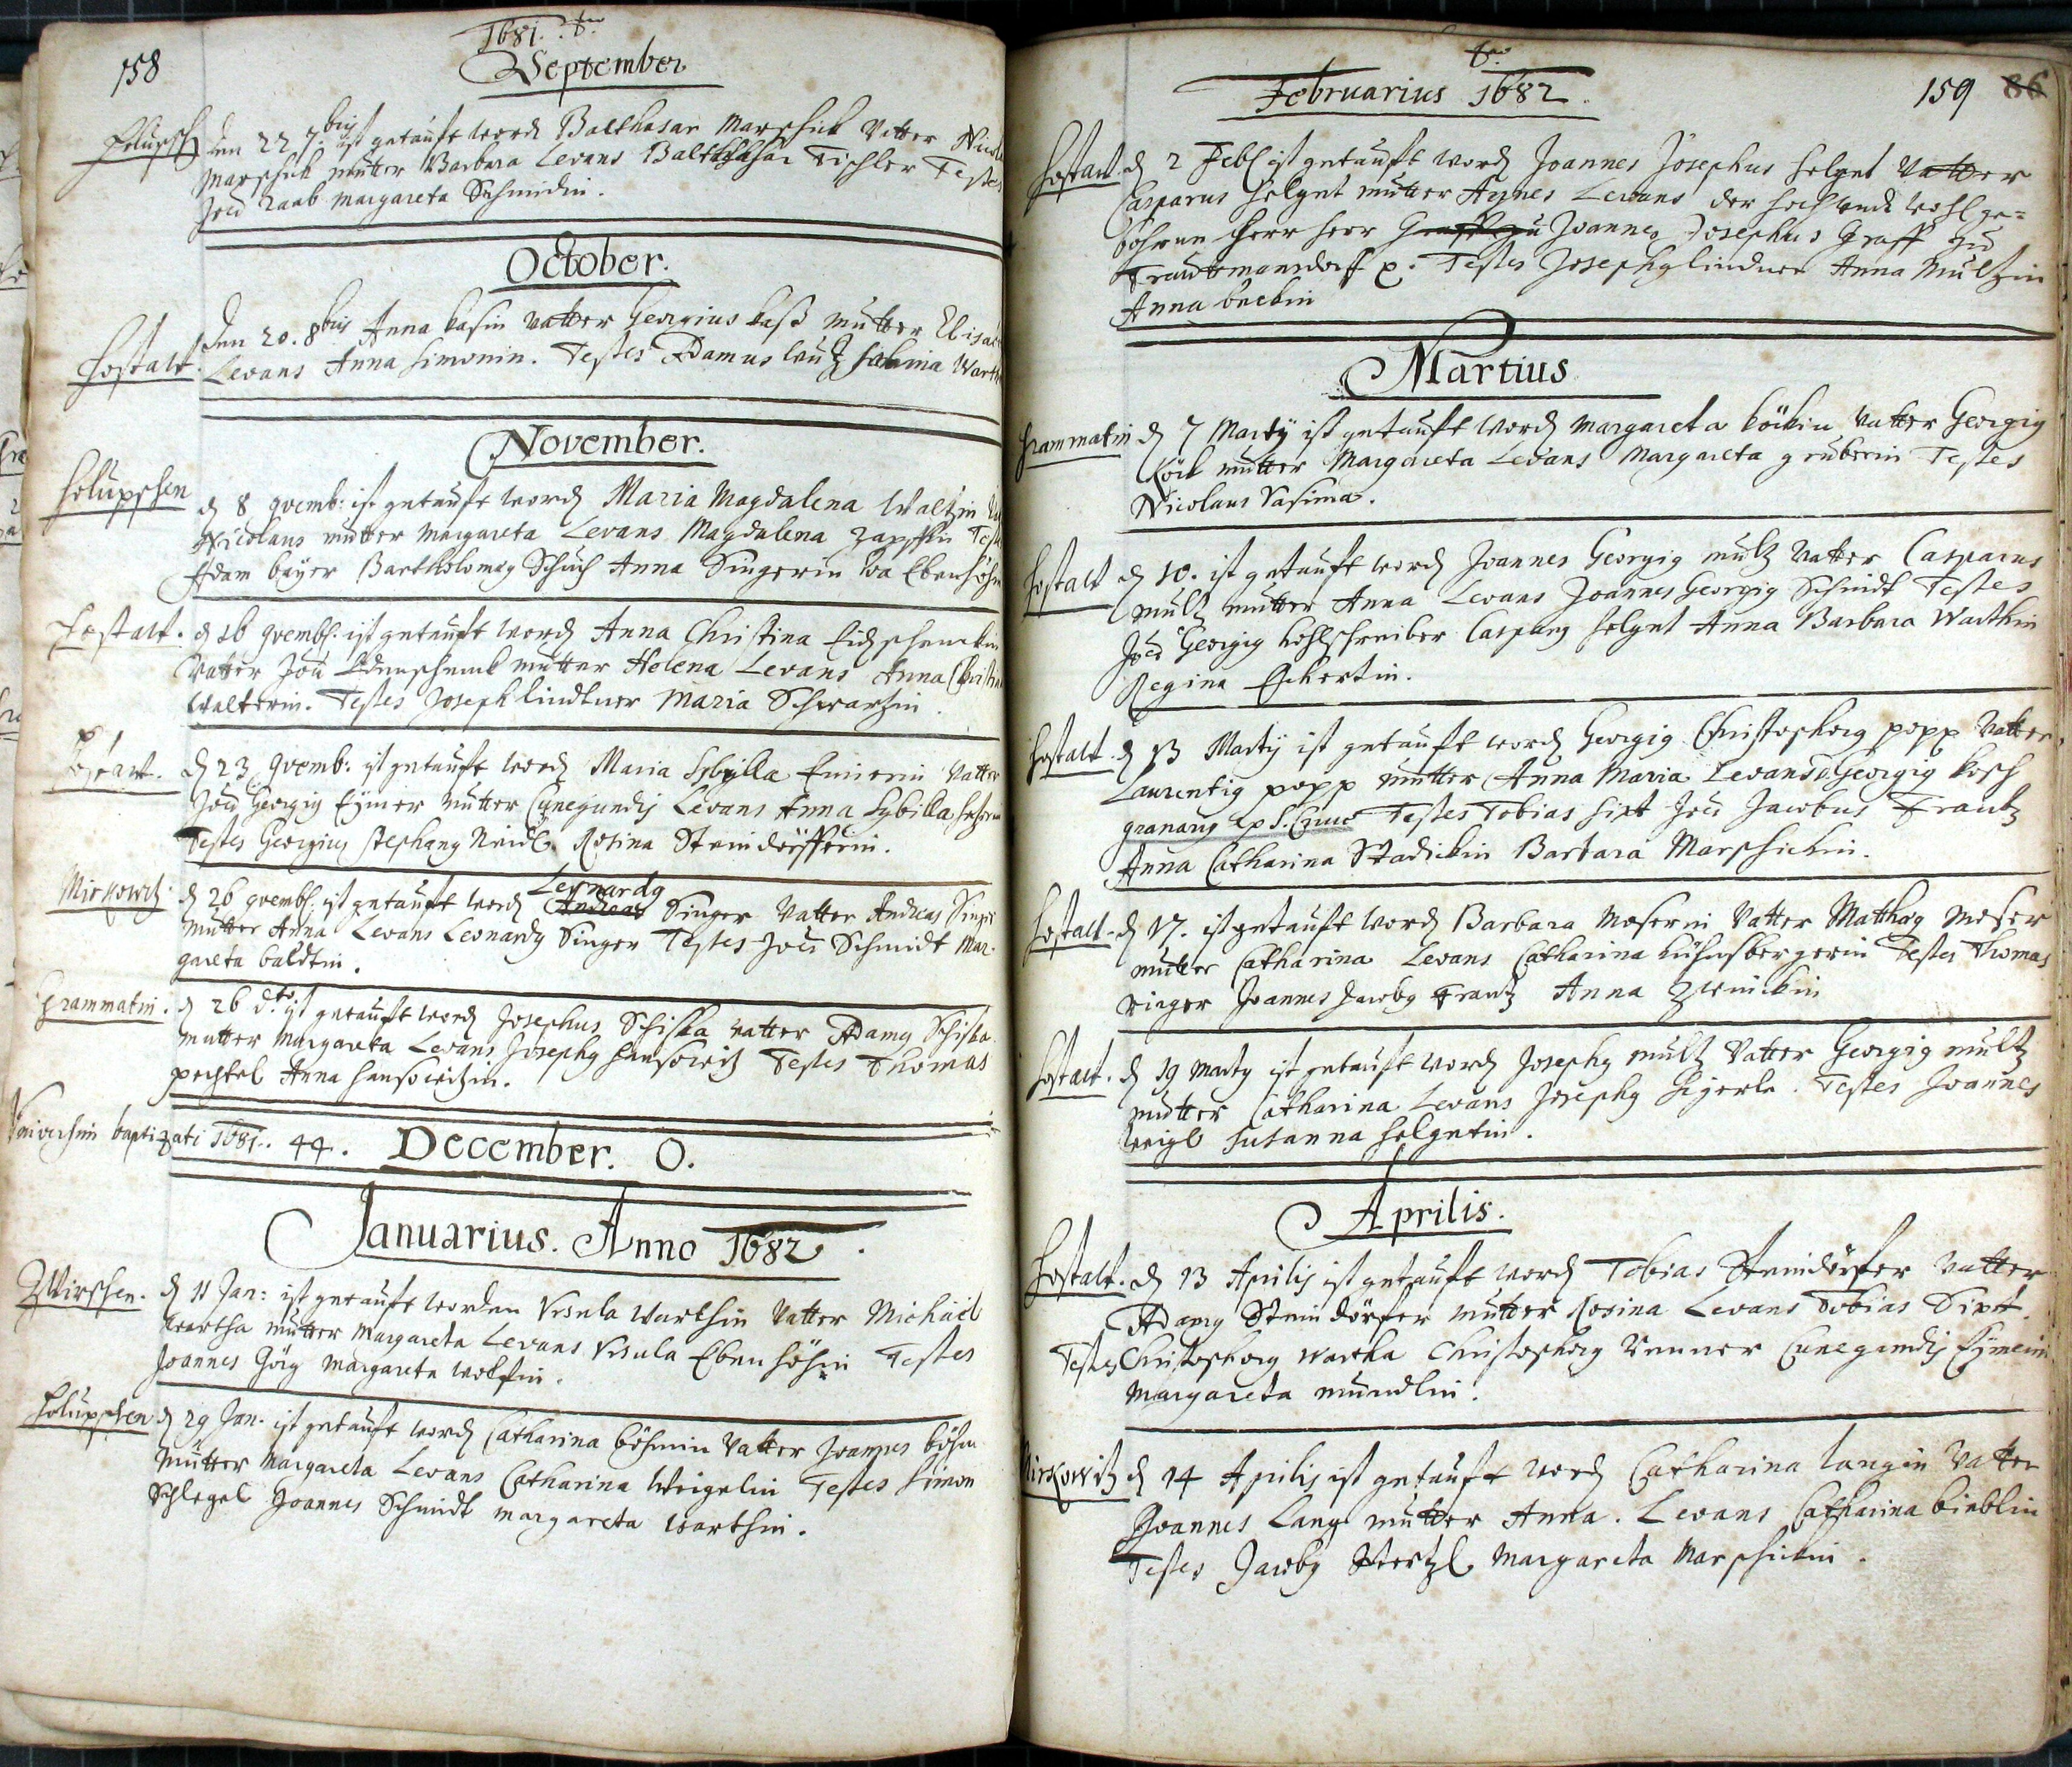 158
1681.
September
den 22 7bris ist getauft word Balthasar Marschik Vatter Nicol
Marschik mutter Barbara Levans Balthasar Tischler Testes
Raab Margareta Schmidin.
October.
Hostau. Den 20. 8bris Anna basin Vatter Georgius bass mutter Elisa
Levans Anna Simonin. Testes Adamus Wartt
November.
Holupschen d 8 9vemb: ist getauft word Maria Magdalena Waltzin
Nicolaus mutter Margareta Levans Magdalena Zapffin Test
Adam bayer Bartholomaeg Schuch Anna Singerin Ebenhöhn
Hostau. d 16 9vemb: ist getauft word Anna Christina Eidschenckin
Vatter Edenschenck mutter Helena Levans Anna Christin
Walterin. Testes Joseph lindtner Maria Schwartzin
Hostau. d 23 9vemb: ist getauft word Maria Sybilla Vatter
Georgig Eymer mutter Cunegundis Levans Anna Sybilla
Testes Georgius Stephang Neidl. Rosina Steindörfferin.
Mirkowitz. d 26 9vemb: ist getauft word Leonardg Andreas Singer Vatter Andreas Singer
mutter Anna Levans Leonardg Singer Testes Schmidt Mar-
gareta baldtin.
Grammatin. d 26 dto ist getauft word Josephus Schiska Vatter Adamg Schiska
mutter Margareta Levans Josephg Hansowitz Testes Thomas
pechtel Anna Hansowitzin.
Universim baptizati 1681. 44. December. 0.
Januarius. Anno 1682.
Zwirschen. d 11 Jan: ist getauft worden Ursula Warthin Vatter Michäel
Wartha mutter Margareta Levans Ursula Ebenhöhin Testes
Joannes Görg Margareta Wolfin.
Holupschen d 29 Jan. ist getauft word Catharina böhmin Vatter Joannes böhm
mutter Margareta Levans Catharina Weigelin Testes Simon
Schlegel Joannes Schmidt Margareta Warthin.
Februarius 1682.
159 86
Hostau. d 2 Febl ist getauft word Joannes Josephus Helgnt Vatter
Casparus Helgnt mutter Agnes Levans der hoch und wohl ge-
bohrne Herr Herr Graff zu Joannes Josephus Graff zu
Trautmansdorff p. Testes Josephg lindner Anna Multzin
Anna beckin
Martius
Grammatin d 7 Martij ist getauft word Margareta köckin Vatter Georgig
köck mutter Margareta Levans Margareta gruberin Testes
Nicolaus Vasima.
Hostau d 10. ist getauft word Joannes Georgig multz Vatter Casparus
multz mutter Anna Levans Joannes Georgig Schmidt Testes
Georgig kohlschreiber Casparg Helgnt Anna Barbara Warthin
Regina Eckertin.
Hostau. d 13 Martij ist getauft word Georgig Christophorg popp Vatter
Laurentig popp mutter Anna Maria Levans D. Georgig kosch
granarg Testes Tobias Sixt Jacobus Frantz
Anna Catharina Stadickin Barbara Marschickin.
Hostau. d 17. ist getauft word Barbara Moserin Vatter Matthäg Moser
mutter Catharina Levans Catharina kühnsbergerin Testes Thomas
rieger Joannes Jacobg Frantz Anna Zwinickin
Hostau. d 19 Marty ist getauft word Josephg multz Vatter Georgig multz
mutter Catharina Levans Josephg Testes Joannes
Weigl Susanna Helgntin.
Aprilis.
Hostau. d 13 Aprilis ist getauft word Tobias Steindörfer Vatter
Adamg Steindörfer mutter Rosina Levans Tobias Sixt
Testes Christophorg Wartha Christophorg Renner Cunegundis Eymerin
Margareta mundlin.
Mirkowitz d 14 Aprilis ist getauft word Catharina langin Vatter
Joannes Lang mutter Anna. Levans Catharina bieblin
Testes Jacobg Stertzl Margareta Marschickin.